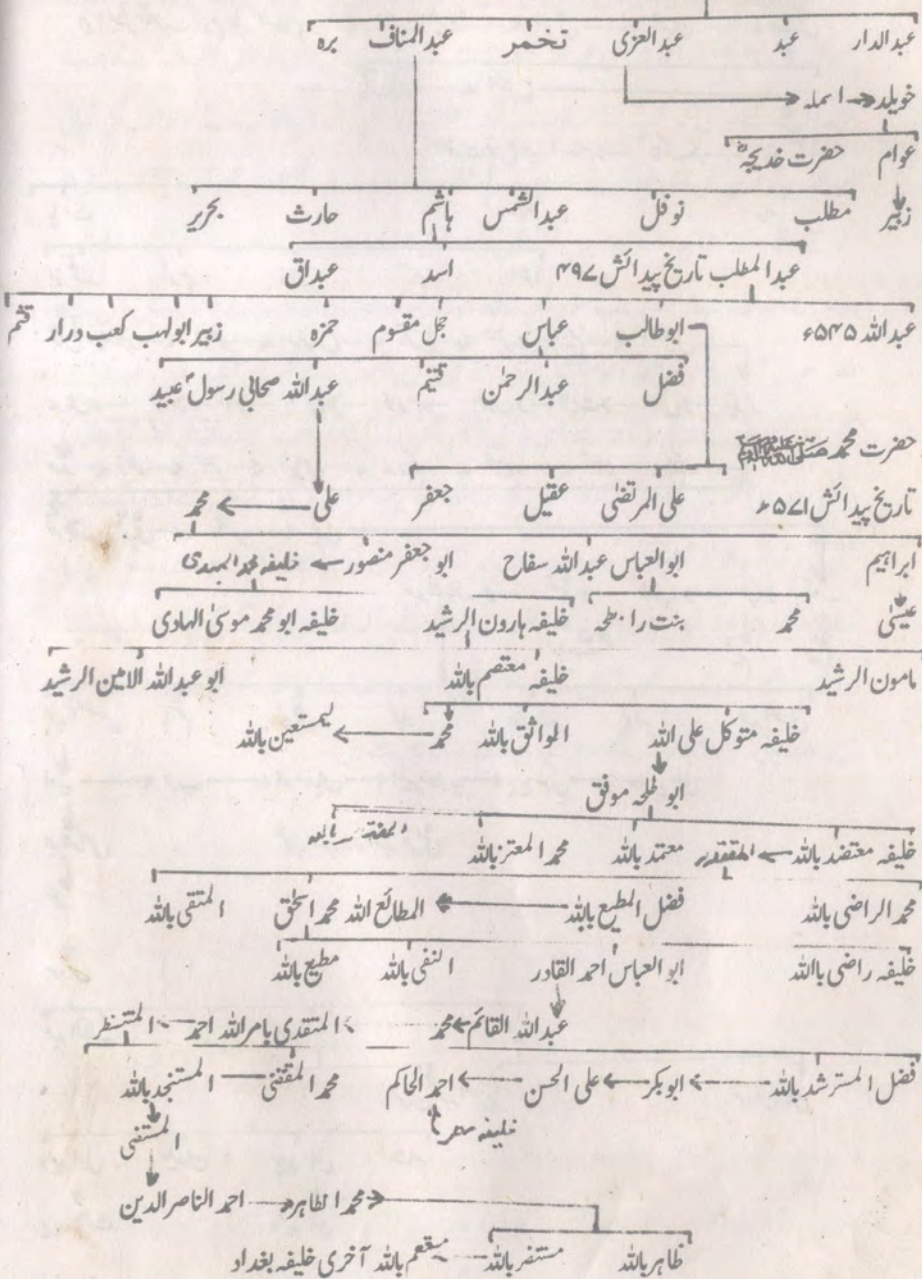 عبدالدار عبد عبدالعزی تخمر عبدالمناف برہ
خویلد اسملہ
عوام حضرت خدیجہؓ
زبیر مطلب نوفل عبدالشمس ہاشم حارث بحریر
عبدالمطلب تاریخ پیدائش ۴۹۷ اسد عبداق
عبداللہ ۵۴۵ء ابوطالب عباس حجل مقسوم حمزہ زبیر ابولہب کعب درار قثم
فضل عبدالرحمٰن قثیم عبداللہ صحابی رسولؐ عبید
حضرت محمد صلی اللہ علیہ وسلم
تاریخ پیدائش ۵۷۱ء علی المرتضٰی عقیل جعفر علی محمد
ابراہیم ابوالعباس عبداللہ سفاح ابو جعفر منصور خلیفہ محمد المہدی
عیسٰی محمد بنت رابطہ خلیفہ ہارون الرشید خلیفہ ابو محمد موسیٰ الہادی
مامون الرشید خلیفہ معتصم باللہ ابو عبداللہ الامین الرشید
خلیفہ متوکل علی اللہ الواثق باللہ محمد لیمستعین باللہ
ابو طلحہ موفق
خلیفہ معتضد باللہ المقتدر معتمد باللہ محمد المعتز باللہ
محمد الراضی باللہ فضل المطیع باللہ المطائع اللہ محمد اسحٰق المتقی باللہ
خلیفہ راضی بااللہ ابوالعباس احمد القادر النفی باللہ مطیع باللہ
عبداللہ القائم محمد المتقدی بامراللہ احمد المتنظر
فضل المسترشد باللہ ابوبکر علی الحسن احمد الحاکم محمد المقتفی المستنجد باللہ
خلیفہ مصر المستفی
محمد الظاہر احمد الناصر الدین
ظاہر باللہ مستنصر باللہ مستعصم باللہ آخری خلیفہ بغداد